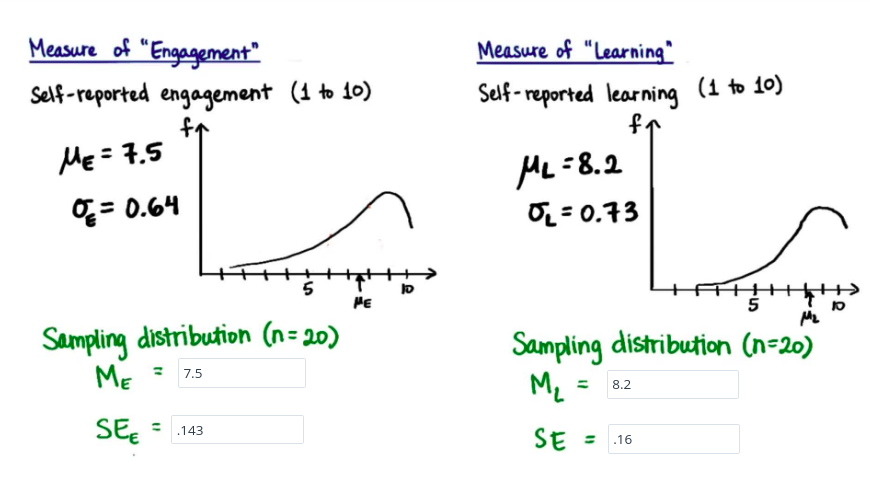 Measure of "Engagement"
Self-reported engagement (1 to 10)
f
μE = 7.5
σE = 0.64
5
10
μE
Sampling distribution (n=20)
ME = 7.5
SEE = .143
Measure of "Learning"
Self-reported learning (1 to 10)
f
μL = 8.2
σL = 0.73
5
10
μL
Sampling distribution (n=20)
ML = 8.2
SE = .16